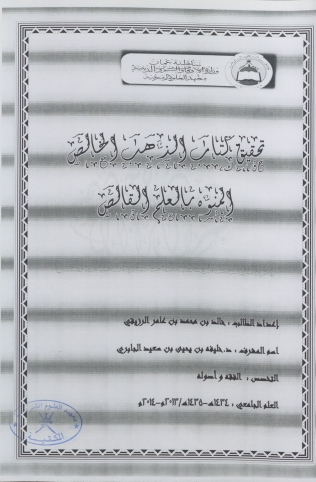 سلطنة عمان
وزارة الأوقاف والشؤون الدينية
معهد العلوم الشرعية
تحقيق كتاب الذهب الخالص
المنوه بالعلم القالص
إعداد الطالب : خالد بن محمد بن عامر الرزيقي
اسم المشرف : د.خليفه بن يحيى بن سعيد الجابري
التخصص : الفقه و أصوله
العام الجامعي : ١٤٣٤هـ-١٤٣٥هـ/٢٠١٣م-٢٠١٤م
معهد العلوم الشرعية
المكتبة